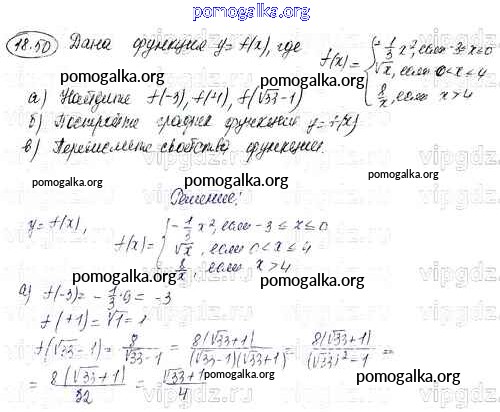 pomogalka.org
18.50 Дана функция y = f(x), где f(x) = { -1/3 x², если -3 ≤ x ≤ 0
√x, если 0 < x ≤ 4
8/x, если x > 4
pomogalka.org pomogalka.org
а) Найдите f(-3), f(+1), f(√33 - 1)
б) Постройте график функции y = f(x)
в) Перечислите свойства функции.
pomogalka.org pomogalka.org pomogalka.org
Решение:
y = f(x),
f(x) = { -1/3 x², если -3 ≤ x ≤ 0
√x, если 0 < x ≤ 4
8/x, если x > 4
pomogalka.org pomogalka.org
а) f(-3) = -1/3 · 9 = -3
f(+1) = √1 = 1
pomogalka.org pomogalka.org
f(√33 - 1) = 8/(√33 - 1) = 8(√33 + 1)/((√33 - 1)(√33 + 1)) = 8(√33 + 1)/((√33)² - 1) =
= 8(√33 + 1)/32 = (√33 + 1)/4
pomogalka.org pomogalka.org
vipgdz